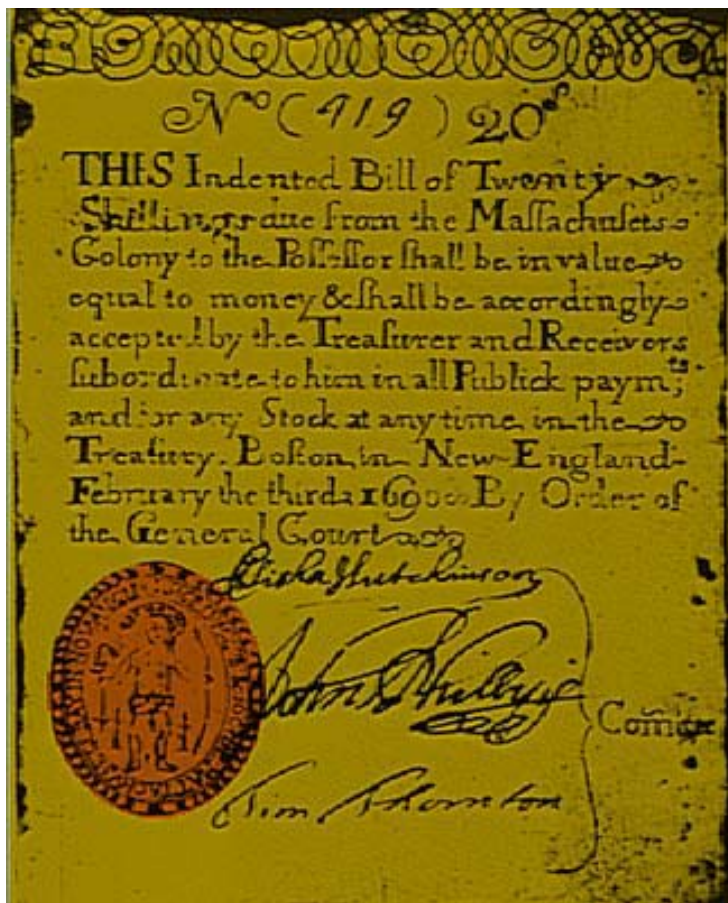 Nº (419) 20ˢ
THIS Indented Bill of Twenty
Shillings due from the Maſſachuſets
Colony to the Poſſeſſor ſhall be in value
equal to money & ſhall be accordingly
accepted by the Treaſurer and Receivers
ſubordinate to him in all Publick paymᵗˢ;
and for any Stock at any time in the
Treaſury. Boſton in New-England
February the third 1690 By Order of
the General Court
Elisha Hutchinson
John Phillips
Comᵗᵉᵉ
Tim Thornton